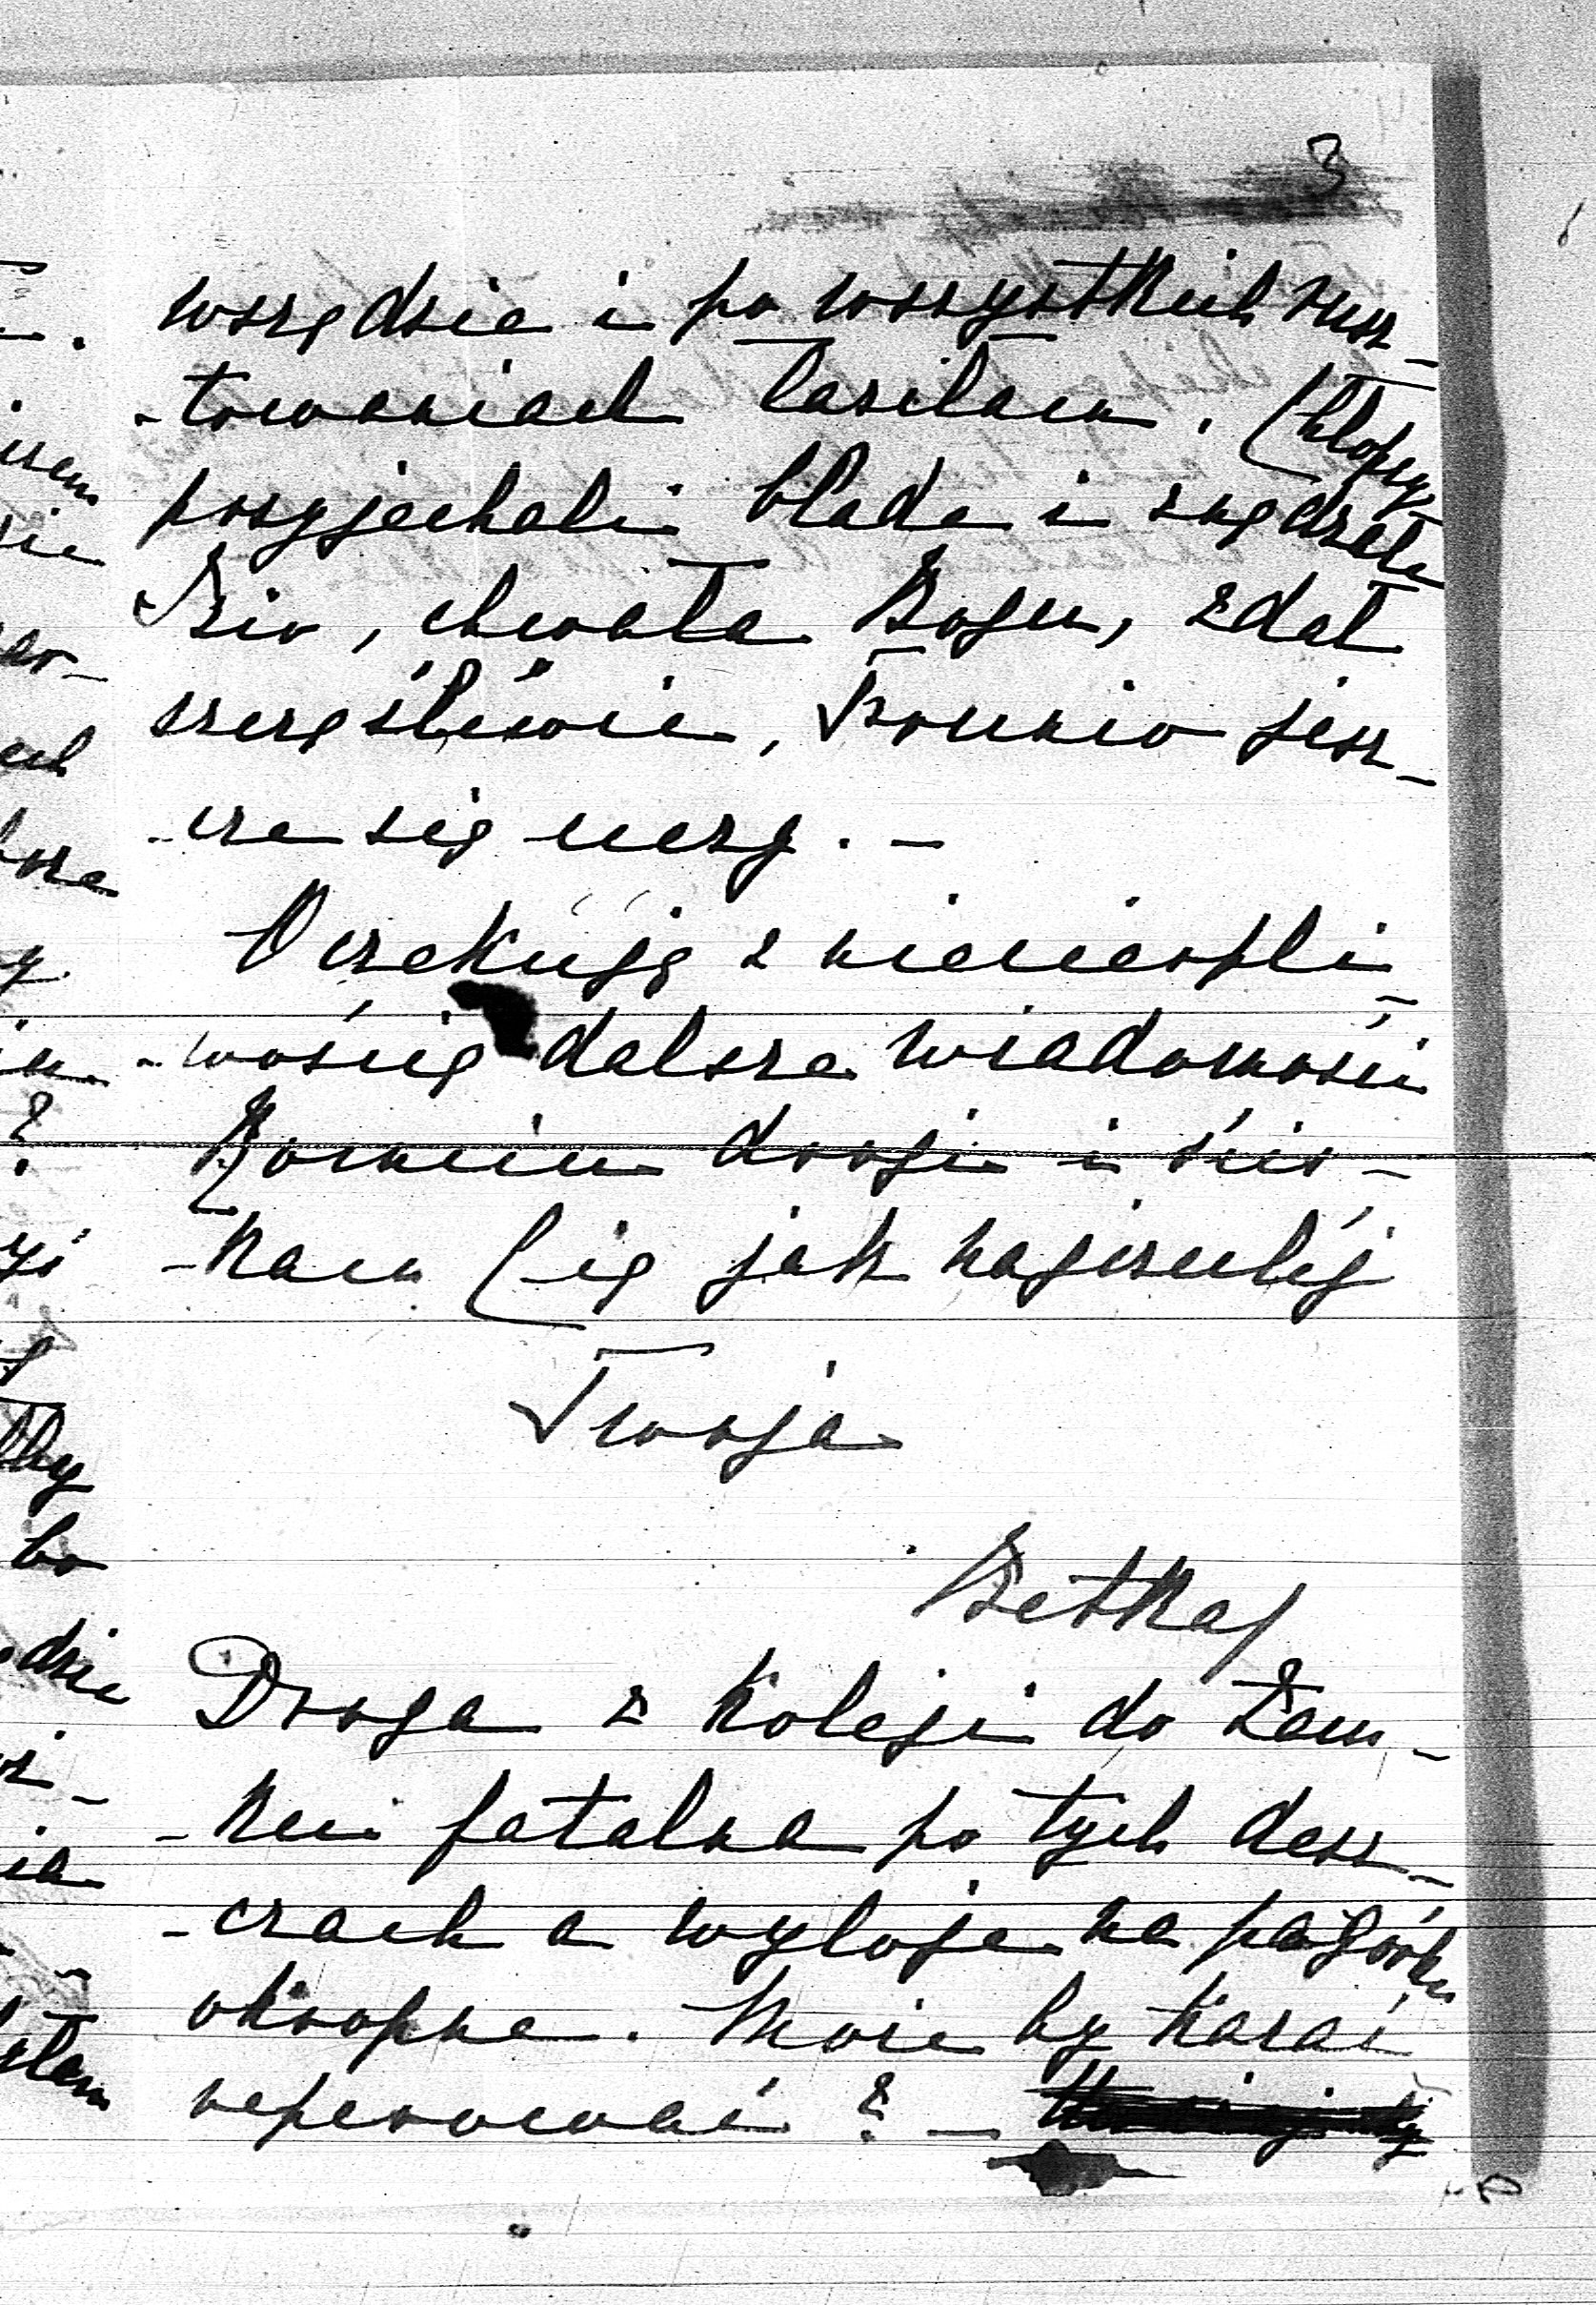 3
wszędzie i po wszystkich rusz-
-towaniach łaziłam. Chłopcy
przyjechali blade i zmęczone
Izio, chwała Bogu, zdał
szczęśliwie, Bronio jesz-
-cze się uczy. -
Oczekuję z niecierpli-
-wością dalsze wiadomości
drogi i ścis-
-kam Cię jak najczuléj
Twoja
Betka
Droga z Koleji do Zam-
-ku fatalna po tych desz-
-czach a wyboje na pagórku
okropne. Może by kazać
reperować? -